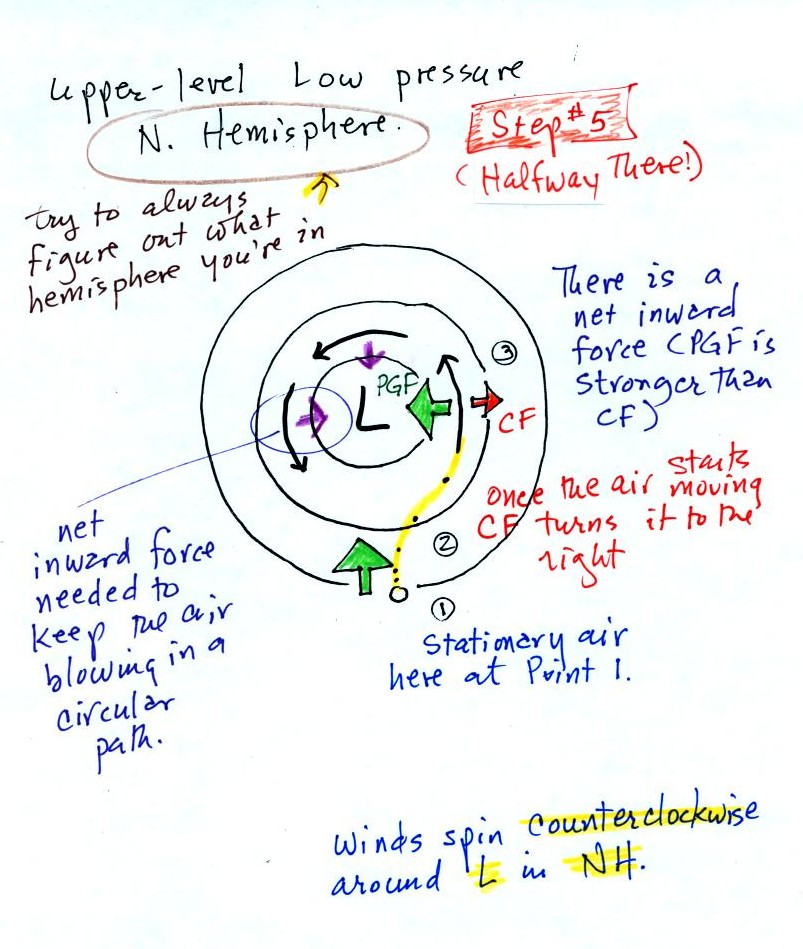 upper-level Low pressure
N. Hemisphere.
Step #5
(Halfway There!)
try to always
figure out what
hemisphere you're in
There is a
net inward
force (PGF is
stronger than
CF)
3
PGF
L
CF
once the air starts moving
CF turns it to the
right
2
1
Stationary air
here at Point 1.
net
inward force
needed to
keep the air
blowing in a
circular
path.
Winds spin counterclockwise
around L in NH.